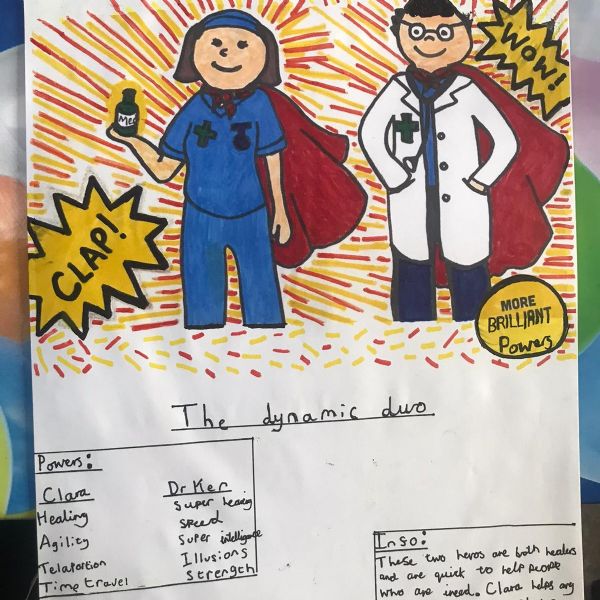 WOW!
Med
CLAP!
MORE
BRILLIANT
Powers
The dynamic duo
Powers:
Clara
Healing
Agility
Telaportion
Time travel
Dr Ker
Super hearing
Speed
Super intelligence
Illusions
Strength
Info:
These two heros are both healers
and are quick to help People
who are ineed. Clara helps any